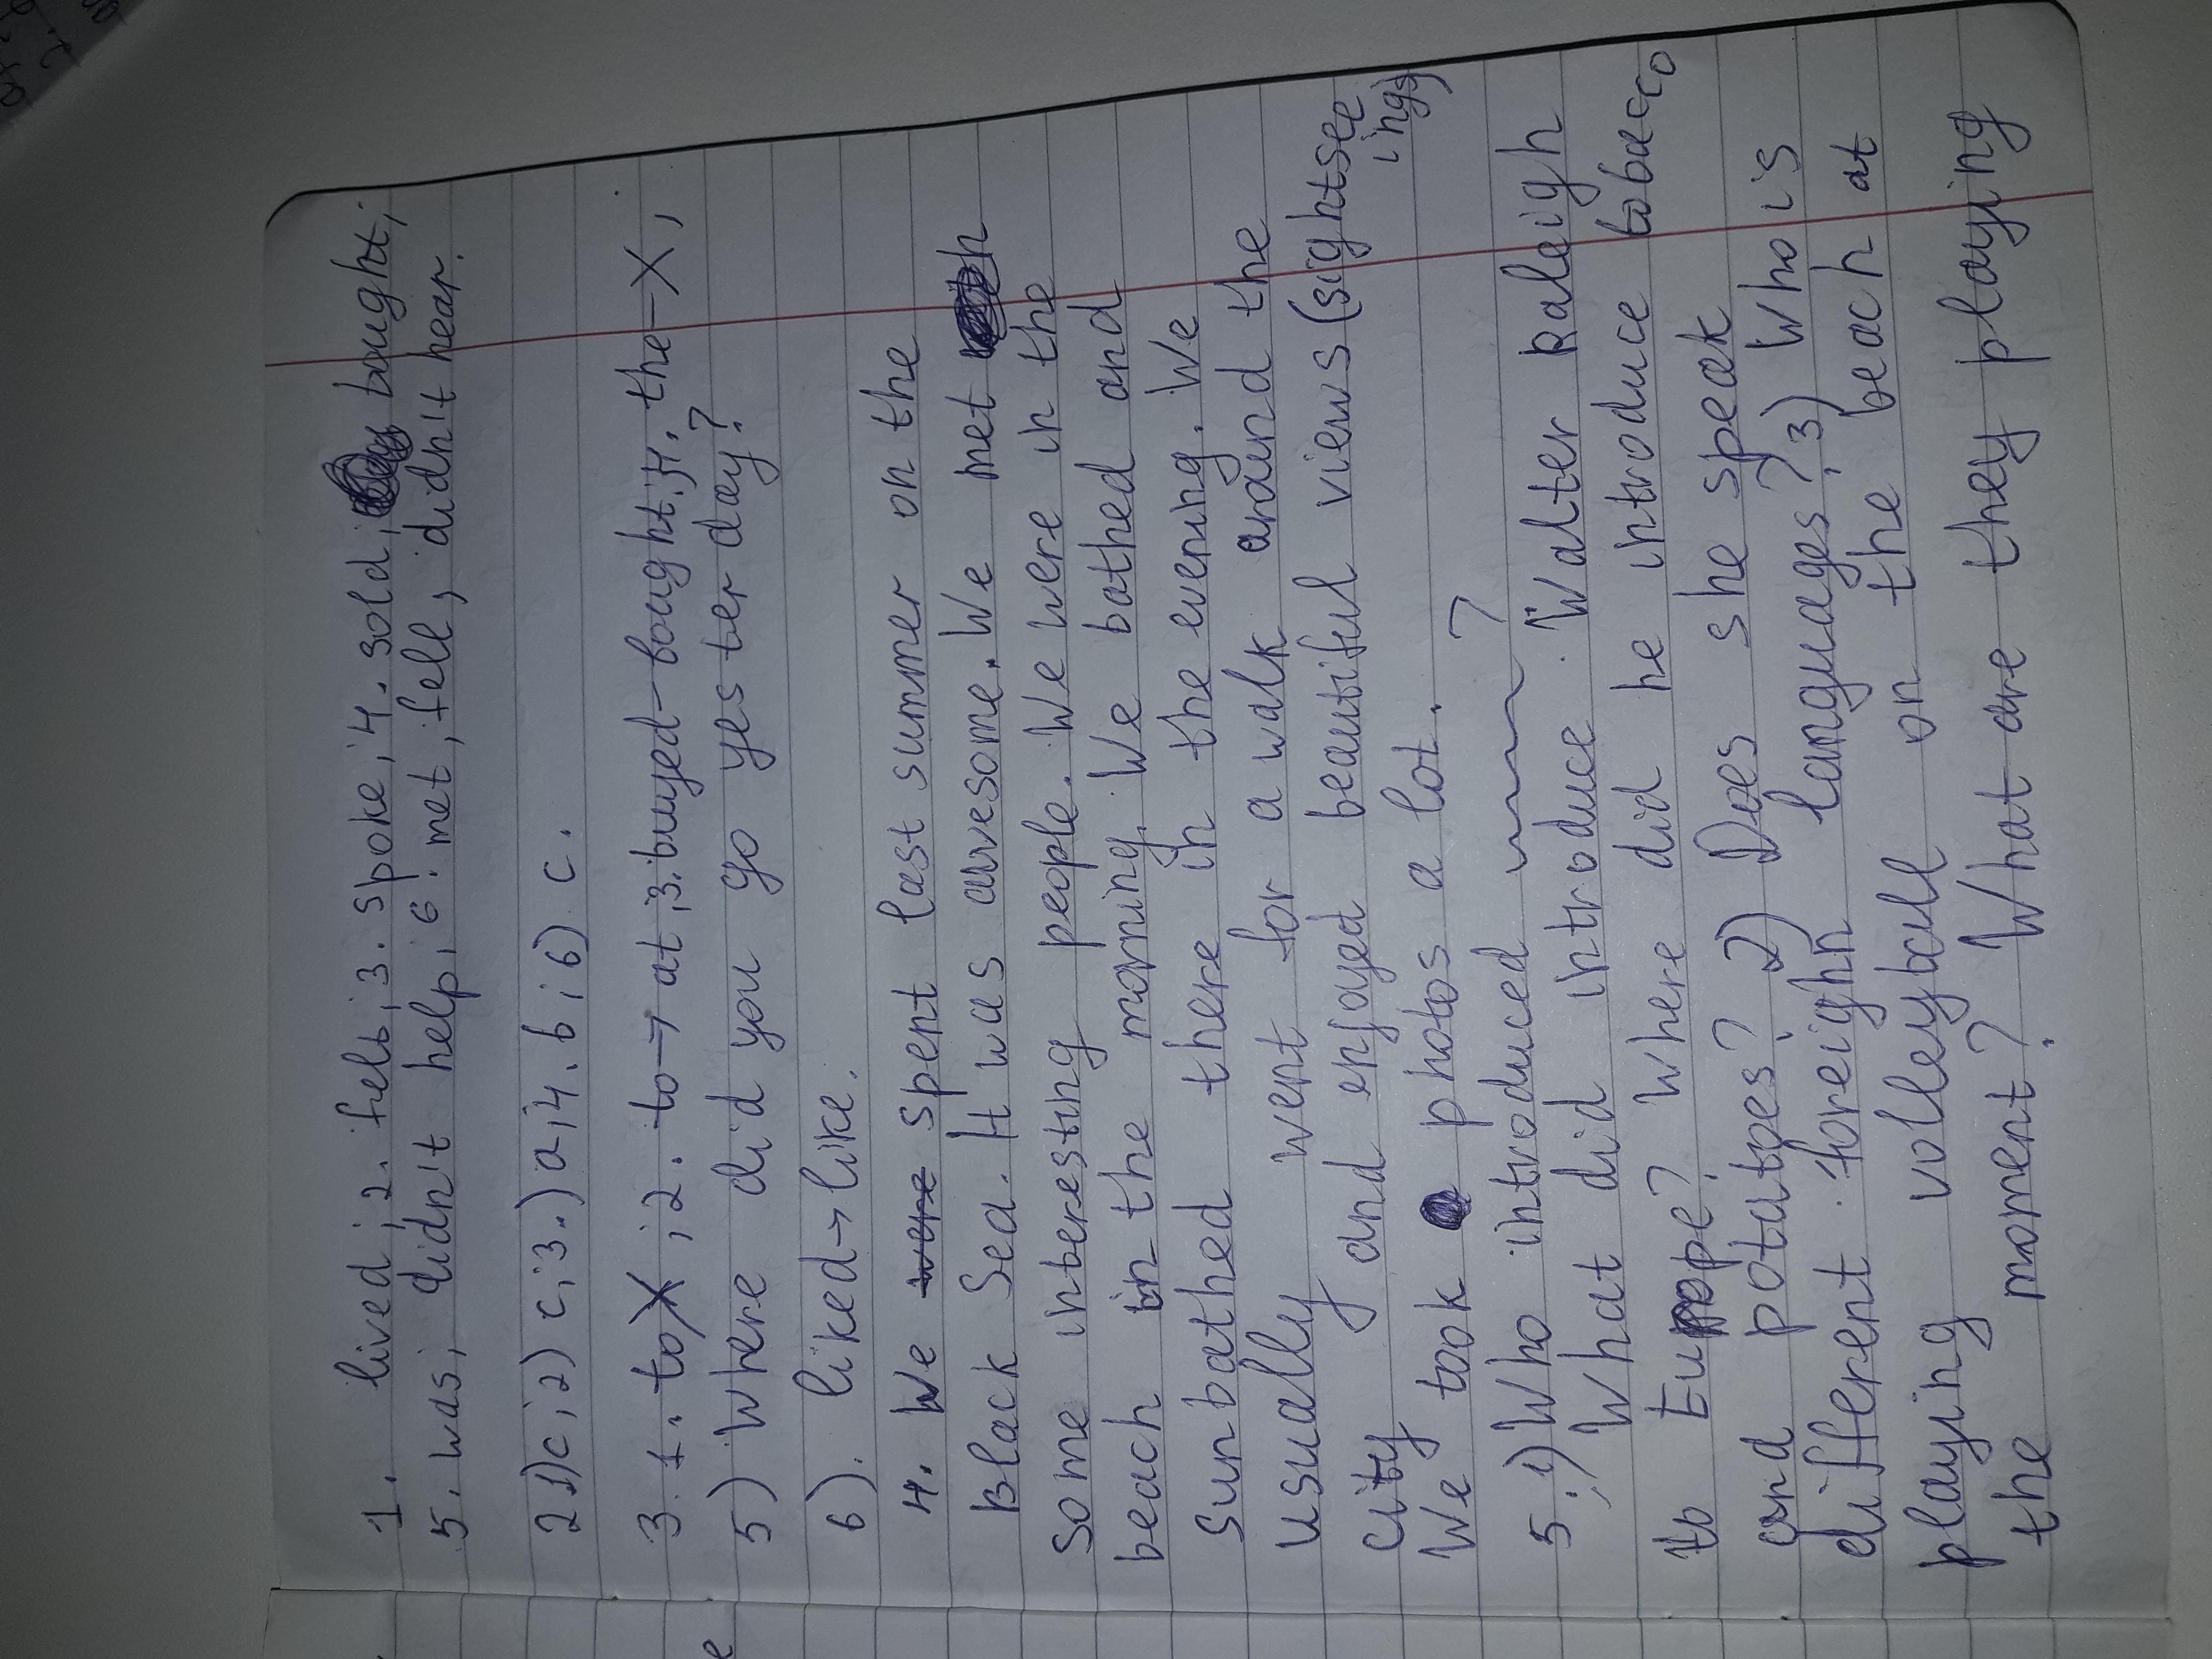 1. lived; 2. felt; 3. spoke; 4. sold; bought;
5. was; didn't help; 6. met, fell, didn't hear.
2 1) c; 2) c; 3.) a; 4. b; 6) c.
3. 1. to X; 2. to → at; 3. buyed - bought; 4. the - X;
5) Where did you go yesterday?
6). liked → like.
4. We were spent last summer on the
Black Sea. It was awesome. We met
some interesting people. We were in the
beach in the morning. We bathed and
sunbathed there in the evening. We
usually went for a walk around the
city and enjoyed beautiful views (sightsee
ings)
We took photos a lot.
5. 1) Who introduced ?
What did introduce Walter Raleigh
to Europe? Where did he introduce tobacco
and potatoes? 2) Does she speak
different foreighn languages? 3) Who is
playing volleyball on the beach at
the moment? What are they playing